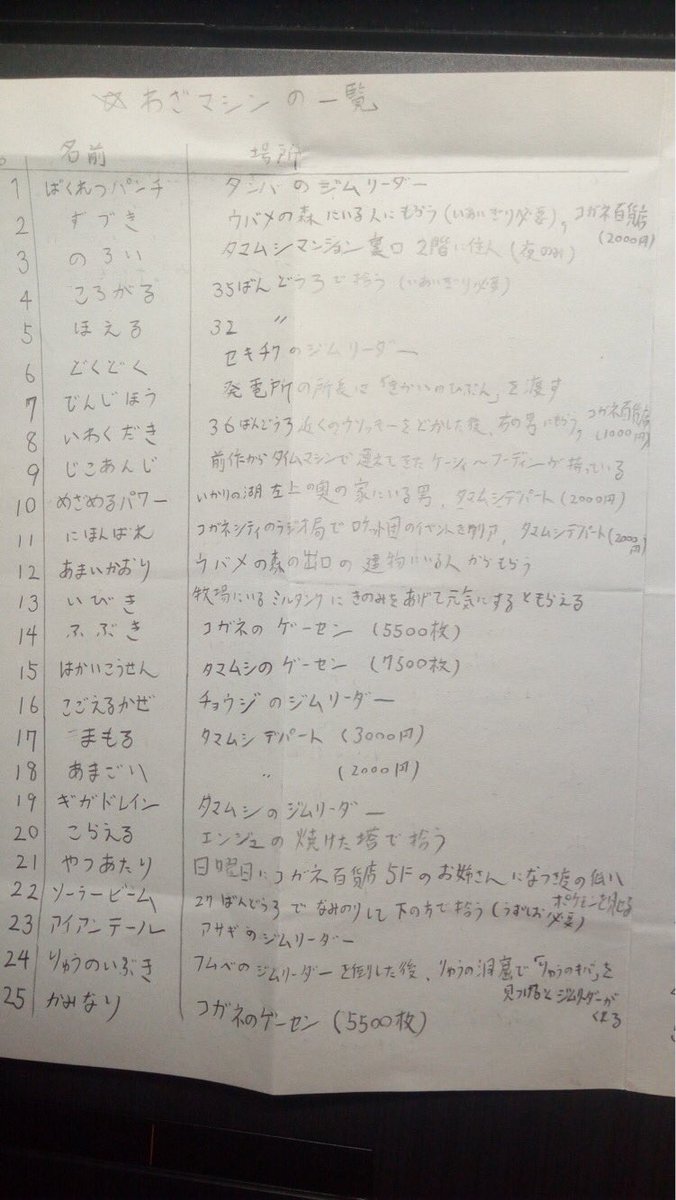 ☆わざマシンの一覧
名前 場所
1 ばくれつパンチ タンバのジムリーダー
2 ずつき ウバメの森にいる人にもらう(いあいぎり必要)、コガネ百貨店(2000円)
3 のろい タマムシマンション裏口2階に住人(夜のみ)
4 ころがる 35ばんどうろで拾う(いあいぎり必要)
5 ほえる 32 〃
6 どくどく セキチクのジムリーダー
7 でんじほう 発電所の所長に「きかいのぶひん」を渡す
8 いわくだき 36ばんどうろ近くのウソッキーをどかした後、右の男にもらう、コガネ百貨店(1000円)
9 じこあんじ 前作からタイムマシンで連れてきたケーシィ〜フーディンが持っている
10 めざめるパワー いかりの湖左上の奥の家にいる男、タマムシデパート(2000円)
11 にほんばれ コガネシティのラジオ局でロケット団のイベントをクリア、タマムシデパート(2000円)
12 あまいかおり ウバメの森の出口の建物にいる人からもらう
13 いびき 牧場にいるミルタンクにきのみをあげて元気にするともらえる
14 ふぶき コガネのゲーセン(5500枚)
15 はかいこうせん タマムシのゲーセン(7500枚)
16 こごえるかぜ チョウジのジムリーダー
17 まもる タマムシデパート(3000円)
18 あまごい 〃 (2000円)
19 ギガドレイン タマムシのジムリーダー
20 こらえる エンジュの焼けた塔で拾う
21 やつあたり 日曜日にコガネ百貨店5Fのお姉さんになつき度の低いポケモンを見せる
22 ソーラービーム 27ばんどうろでなみのりして下の方で拾う(うずしお必要)
23 アイアンテール アサギのジムリーダー
24 りゅうのいぶき フスベのジムリーダーを倒した後、りゅうの洞窟で「りゅうのキバ」を見つけるとジムリーダーがくれる
25 かみなり コガネのゲーセン(5500枚)